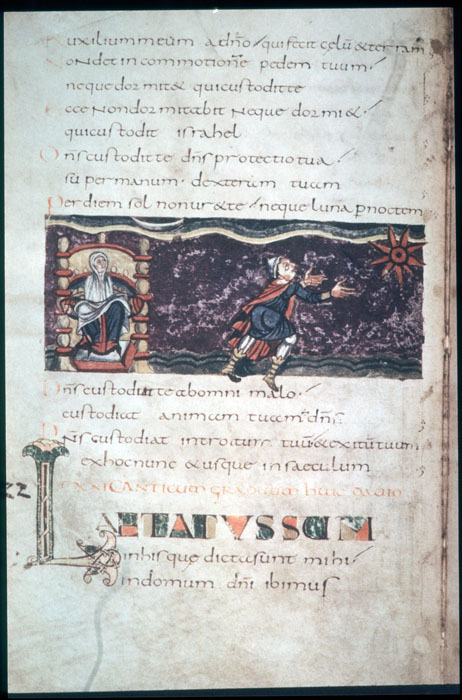 Auxilium meum a dño / qui fecit celũ & terram
Non det in commotionẽ pedem tuum /
neque dormit& qui custodit te
Ecce non dormitabit neque dormi&
qui custodit israhel
Dns custodit te dns protectio tua /
sup manum dexteram tuam
Per diem sol non ur& te / neque luna p noctem
Dns custodit te ab omni malo /
custodiat animam tuam dns
Dns custodiat introitum tuũ & exitũ tuum
ex hoc nunc & usque in saeculum
CXXI CANTICUM GRADUUM HUIC DAVID
22
LAETATUS SUM
in his que dicta sunt mihi /
in domum dñi ibimus